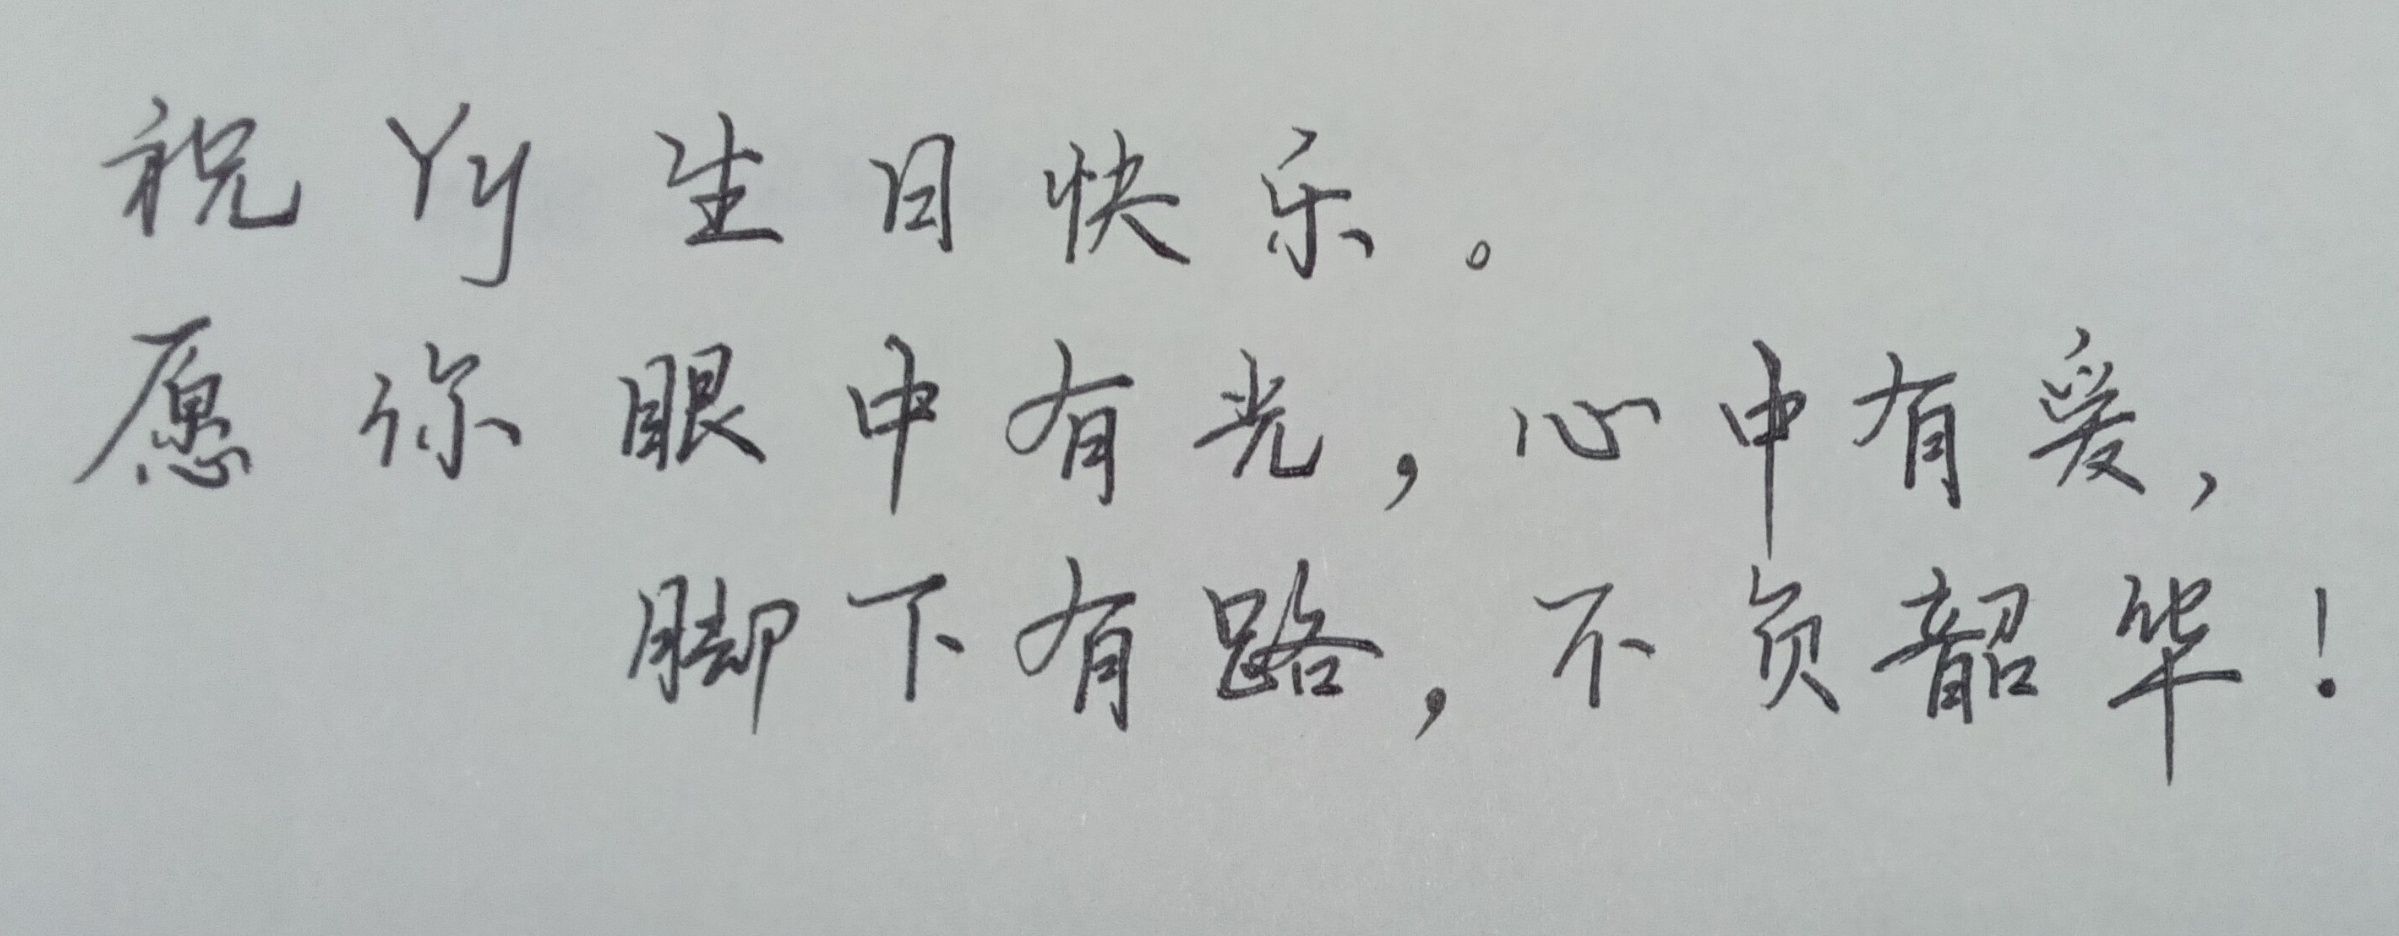 祝 Yy 生日快乐。
愿你眼中有光，心中有爱，
脚下有路，不负韶华！